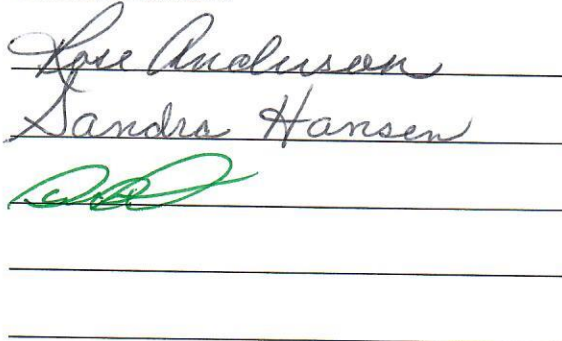 Rose Anderson
Sandra Hansen